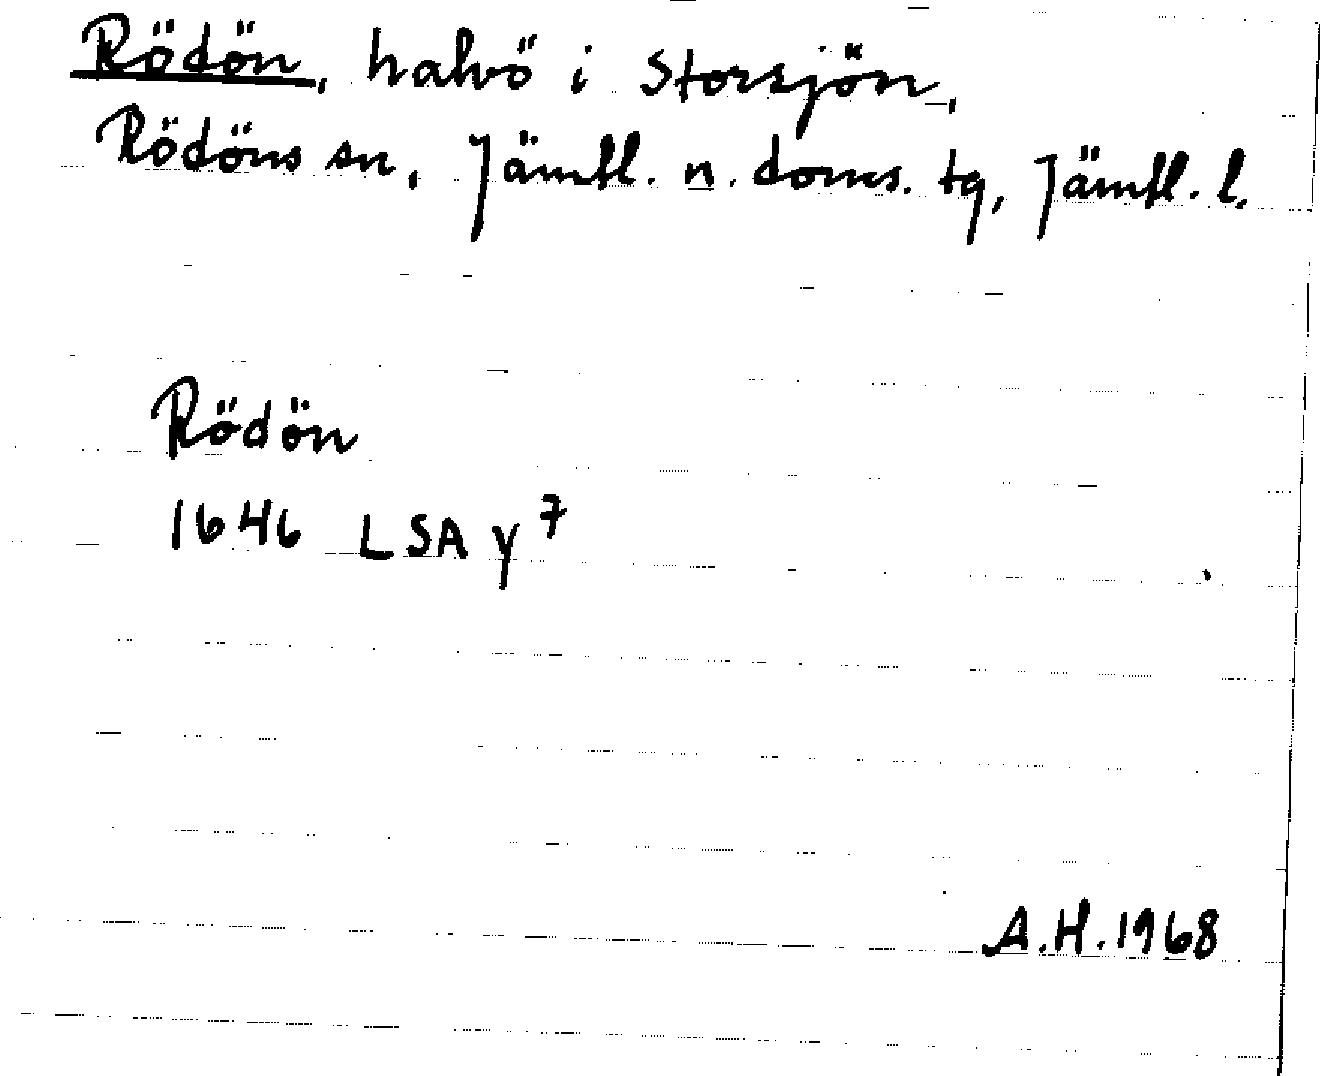 Rödön, halvö i Storsjön,
Rödöns sn, Jämtl. n. doms. tg, Jämtl. l.
Rödön
1646 LSA y 7
A.H. 1968